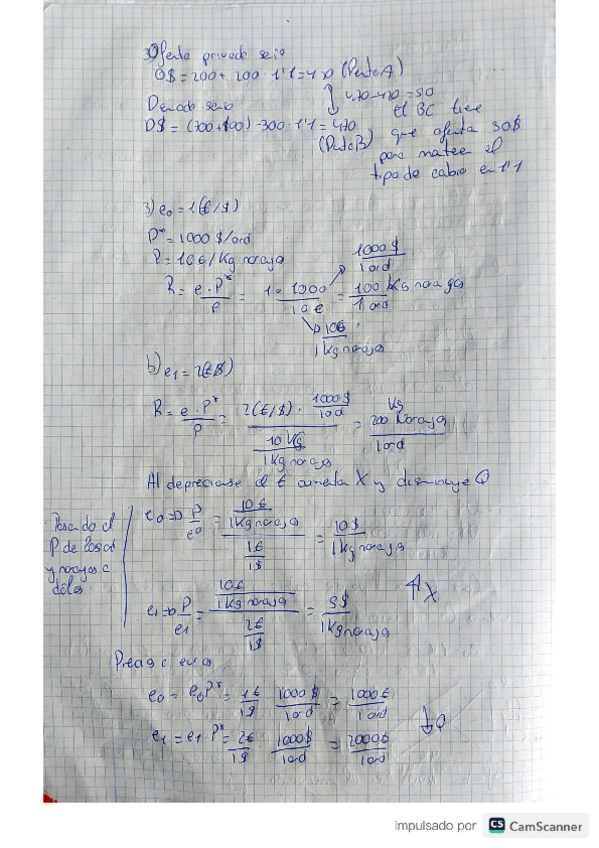 Oferta privada seria
O$ = 200 + 200 · 1'1 = 420 (Punto A)
470-420 = 50
Demanda seria
D$ = (700+100) - 300 · 1'1 = 470
(Punto B)
El BC tiene
que ofertar 50$
para mantener el
tipo de cambio en 1'1
3) e₀ = 1 (€/$)
P* = 1000 $/ord
P = 10€/Kg naranja
R = e · P* / P = 1 · 1000 / 10€ = 100 Kg naranjas / 1 ord
1000 $ / 1 ord
10€ / 1 Kg naranja
b) e₁ = 2(€/$)
R = e · P* / P = 2(€/$) · 1000 $ / 1 ord / 10 Kg / 1 Kg naranja = 200 Kg naranja / 1 ord
Al depreciarse el € aumenta X y disminuye Q
Pasando el
P de las
naranjas a
dólares
e₀ => P / e₀ = 10€ / 1 Kg naranja / 1€ / 1$ = 10$ / 1 Kg naranja
e₁ => P / e₁ = 10€ / 1 Kg naranja / 2€ / 1$ = 5$ / 1 Kg naranja
↑X
Precio a euros
e₀ = e₀P* = 1€ / 1$ 1000 $ / 1 ord = 1000€ / 1 ord
e₁ = e₁ · P* = 2€ / 1$ 1000$ / 1 ord = 2000€ / 1 ord
↓Q
impulsado por CS CamScanner